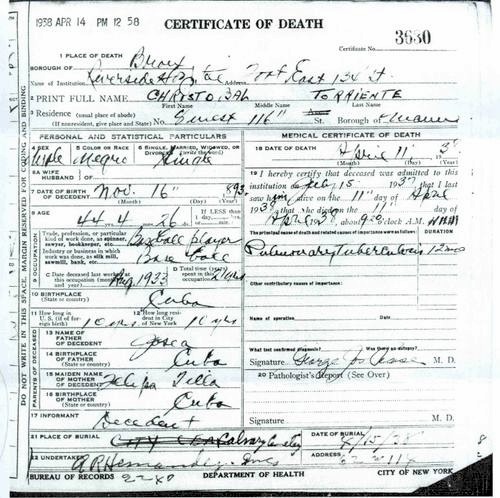 1938 APR 14 PM 12 58
CERTIFICATE OF DEATH
Certificate No. 3630
1 PLACE OF DEATH
BOROUGH OF Bronx
Name of Institution Riverside Hospital Address foot East 134 St.
2 PRINT FULL NAME CHRISTOBAL TORRIENTE
First Name Middle Name Last Name
3 Residence (usual place of abode) No. 116" St. Borough of
(If nonresident, give place and State)
PERSONAL AND STATISTICAL PARTICULARS
4 SEX 5 COLOR OR RACE 6 SINGLE, MARRIED, WIDOWED, OR DIVORCED (write the word)
Male Negro Single
6A WIFE HUSBAND of
7 DATE OF BIRTH OF DECEDENT Nov. 16" 893
(Month) (Day) (Year)
8 AGE 44 4 26 If LESS than 1 day,
9 OCCUPATION
Trade, profession, or particular kind of work done, as spinner, sawyer, bookkeeper, etc. Baseball player
Industry or business in which work was done, as silk mill, sawmill, bank, etc. Base ball
C Date deceased last worked at this occupation (month and year) Aug 1933 D Total time (years) spent in this occupation
10 BIRTHPLACE (State or country) Cuba
11 How long in U. S. (if of foreign birth) 12 How long resident in City of New York
PARENTS OF DECEASED
13 NAME OF FATHER OF DECEDENT
14 BIRTHPLACE OF FATHER (State or country) Cuba
15 MAIDEN NAME OF MOTHER OF DECEDENT Felipa
16 BIRTHPLACE OF MOTHER (State or country) Cuba
17 INFORMANT Decedent
21 PLACE OF BURIAL Calvary Cemetery
22 UNDERTAKER A R Hernandez Inc
BUREAU OF RECORDS DEPARTMENT OF HEALTH CITY OF NEW YORK
MEDICAL CERTIFICATE OF DEATH
18 DATE OF DEATH April 11 38
(Month) (Day) (Year)
19 I hereby certify that deceased was admitted to this institution on Feby 15 1937 that I last saw him alive on the 11" day of April 1938 that he died on the day of April 1938 about o'clock A.M.
The principal cause of death and related causes of importance were as follows: DURATION
Pulmonary Tuberculosis 12 mo
Other contributory causes of importance:
Name of operation
What test confirmed diagnosis? Was there an autopsy?
Signature George M. D.
20 Pathologist's Report (See Over)
Signature M. D.
DATE OF BURIAL 4/15/38
ADDRESS
DO NOT WRITE IN THIS SPACE. MARGIN RESERVED FOR CODING AND BINDING